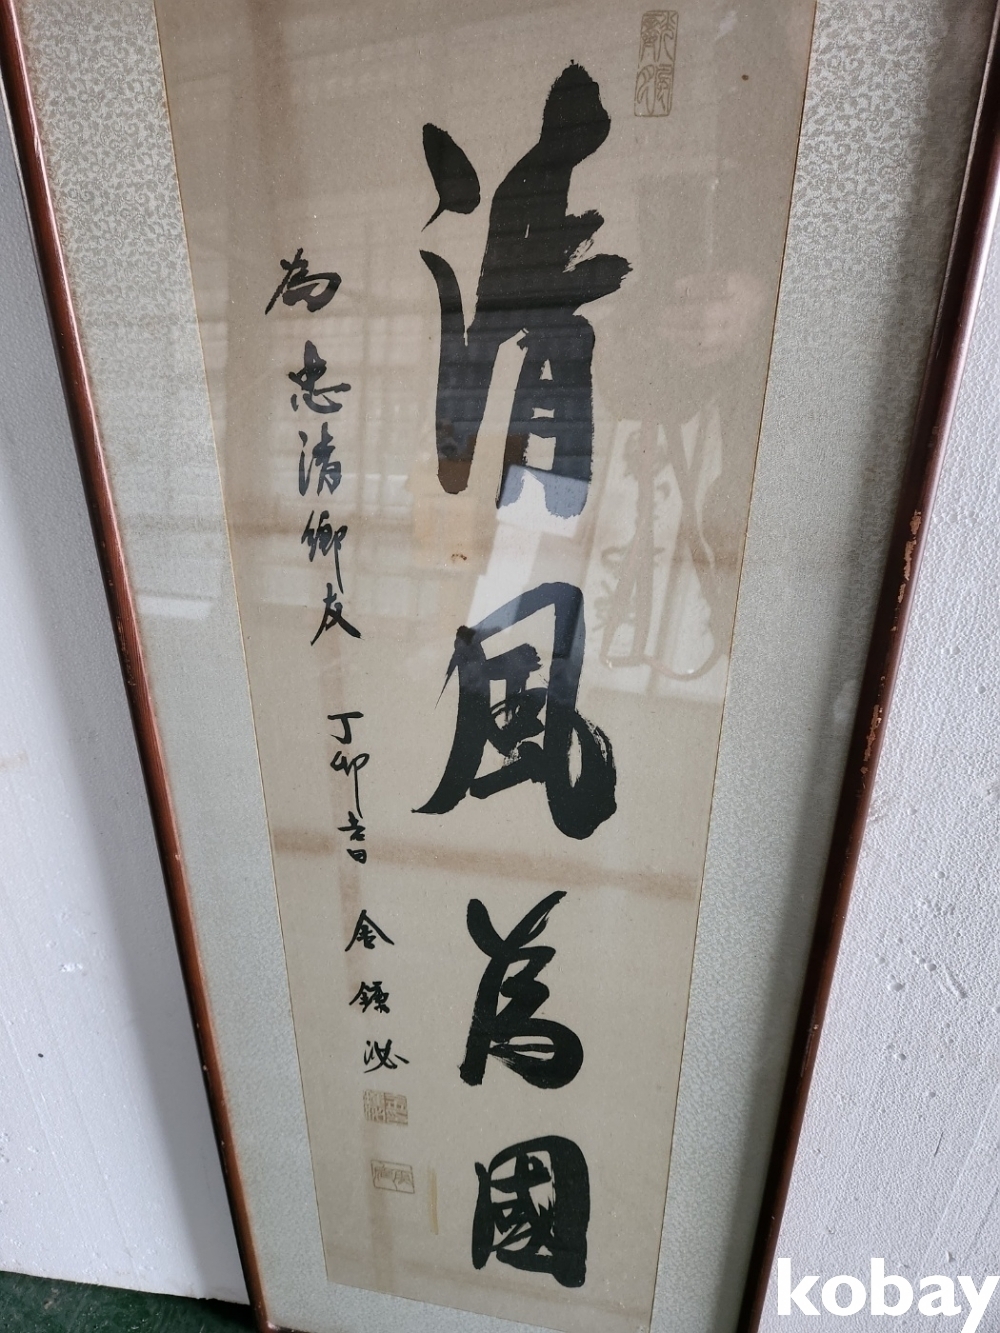 清風為國
為 忠清鄉友 丁卯書 金鐘泌
kobay